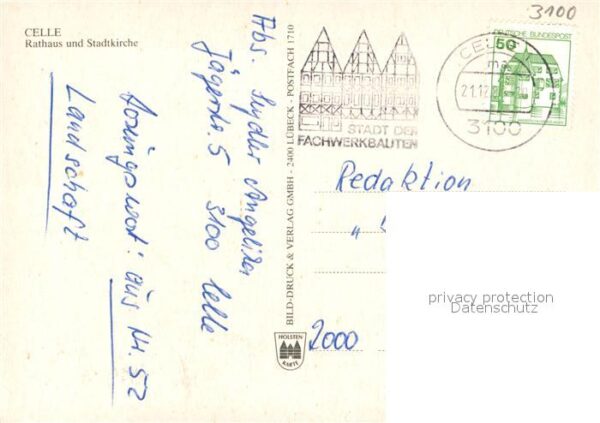 3100
CELLE
Rathaus und Stadtkirche
Abs. Angelika
Jägerstr. 5
3100 Celle
Lösungswort: aus Nr. 52
Landschaft
BILD-DRUCK & VERLAG GMBH - 2400 LÜBECK - POSTFACH 1710
HOLSTEN
KARTE
STADT DER
FACHWERKBAUTEN
CELLE
21.12
3100
DEUTSCHE BUNDESPOST
50
Redaktion
2000
privacy protection
Datenschutz